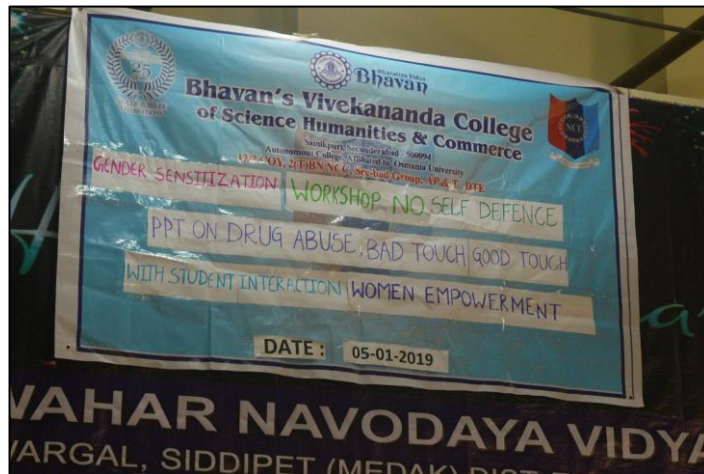 Bharatiya Vidya
Bhavan
25
Bhavan's Vivekananda College
of Science Humanities & Commerce
Sainikpuri, Secunderabad - 500094
Autonomous College, Affiliated to Osmania University
COY, 2(T)BN NCC, Sec-bad Group, AP & T, DTE
NCC
GENDER SENSITIZATION WORKSHOP NO. SELF DEFENCE
PPT ON DRUG ABUSE, BAD TOUCH GOOD TOUCH
WITH STUDENT INTERACTION WOMEN EMPOWERMENT
DATE : 05-01-2019
WAHAR NAVODAYA VIDYA
WARGAL, SIDDIPET (MEDAK) DIST